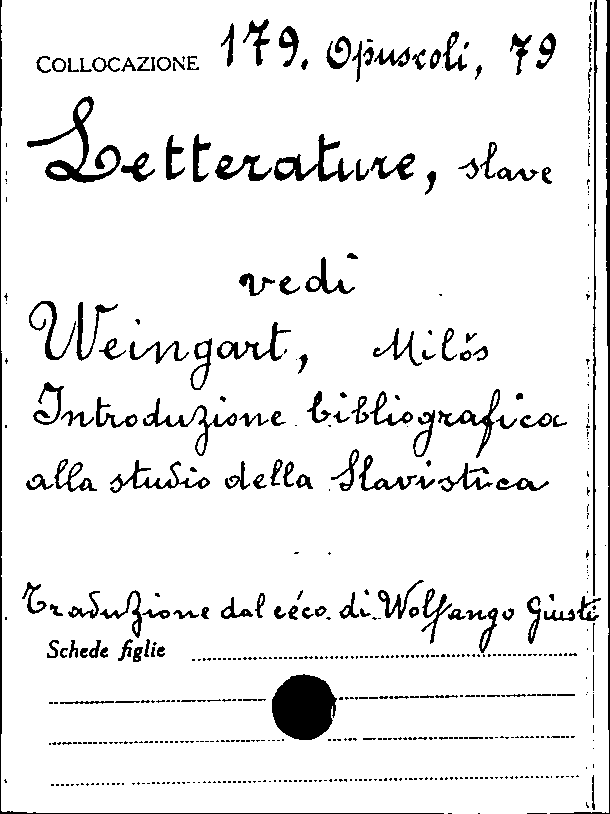 COLLOCAZIONE 179. Opuscoli, 79
Letterature, slave
vedi
Weingart, Milǒs
Introduzione bibliografica
alla studio della Slavistica
Traduzione dal céco di Wolfango Giusti
Schede figlie